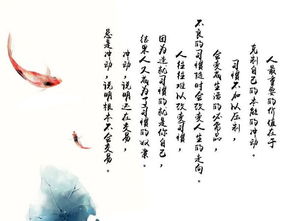 人最重要的价值在于
克制自己的本能的冲动。
习惯不加以压制，
会变成生活的必需品，
不良的习惯随时会改变人生的走向。
人往往难以改变习惯，
因为造就习惯的就是你自己，
结果人又成为了习惯的奴隶。
冲动，说明还在交易。
总是冲动，说明根本不会交易。